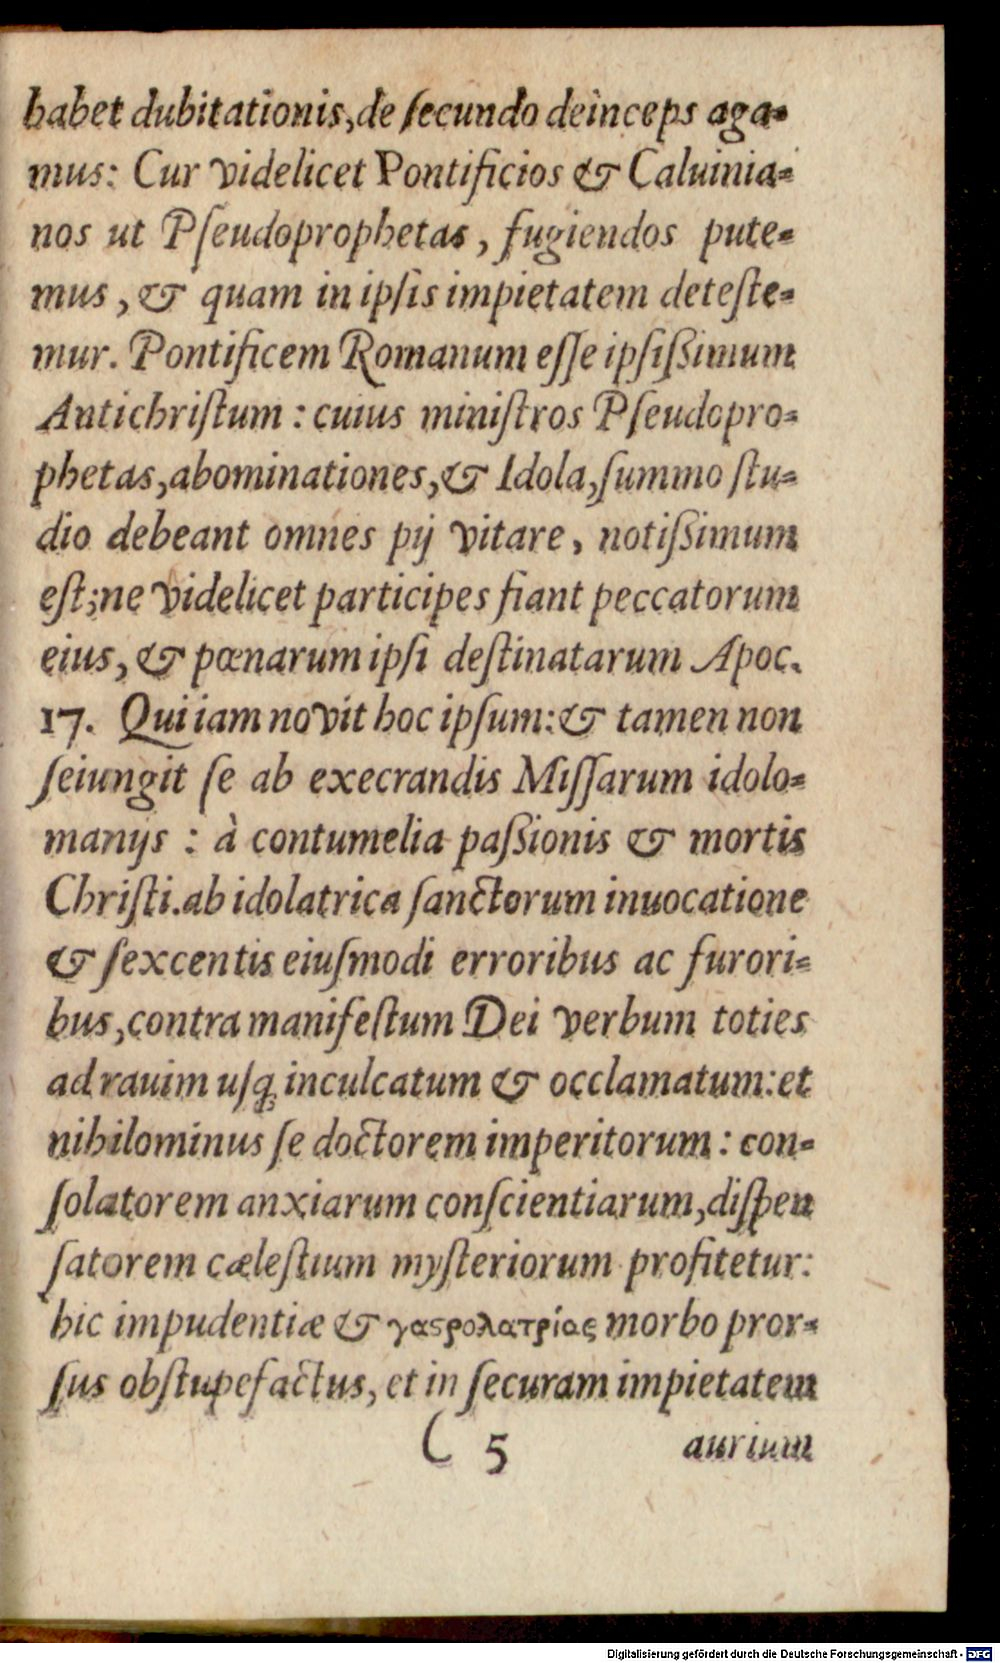 habet dubitationis, de ſecundo deinceps aga-
mus: Cur videlicet Pontificios & Caluinia-
nos ut Pſeudoprophetas, fugiendos pute-
mus, & quam in ipſis impietatem deteſte-
mur. Pontificem Romanum eſſe ipſiſſimum
Antichriſtum: cuius miniſtros Pſeudopro-
phetas, abominationes, & Idola, ſummo ſtu-
dio debeant omnes pij vitare, notiſſimum
eſt; ne videlicet participes fiant peccatorum
eius, & pœnarum ipſi deſtinatarum Apoc.
17. Qui iam novit hoc ipſum: & tamen non
ſeiungit ſe ab execrandis Miſſarum idolo-
manijs: à contumelia paſſionis & mortis
Chriſti. ab idolatrica ſanctorum inuocatione
& ſexcentis eiuſmodi erroribus ac furori-
bus, contra manifeſtum Dei verbum toties
ad rauim uſq; inculcatum & occlamatum: et
nihilominus ſe doctorem imperitorum: con-
ſolatorem anxiarum conſcientiarum, diſpen
ſatorem cæleſtium myſteriorum profitetur:
hic impudentiæ & γαϛρολατρίας morbo pror-
ſus obſtupefactus, et in ſecuram impietatem
C 5 aurium
Digitalisierung gefördert durch die Deutsche Forschungsgemeinschaft - DFG